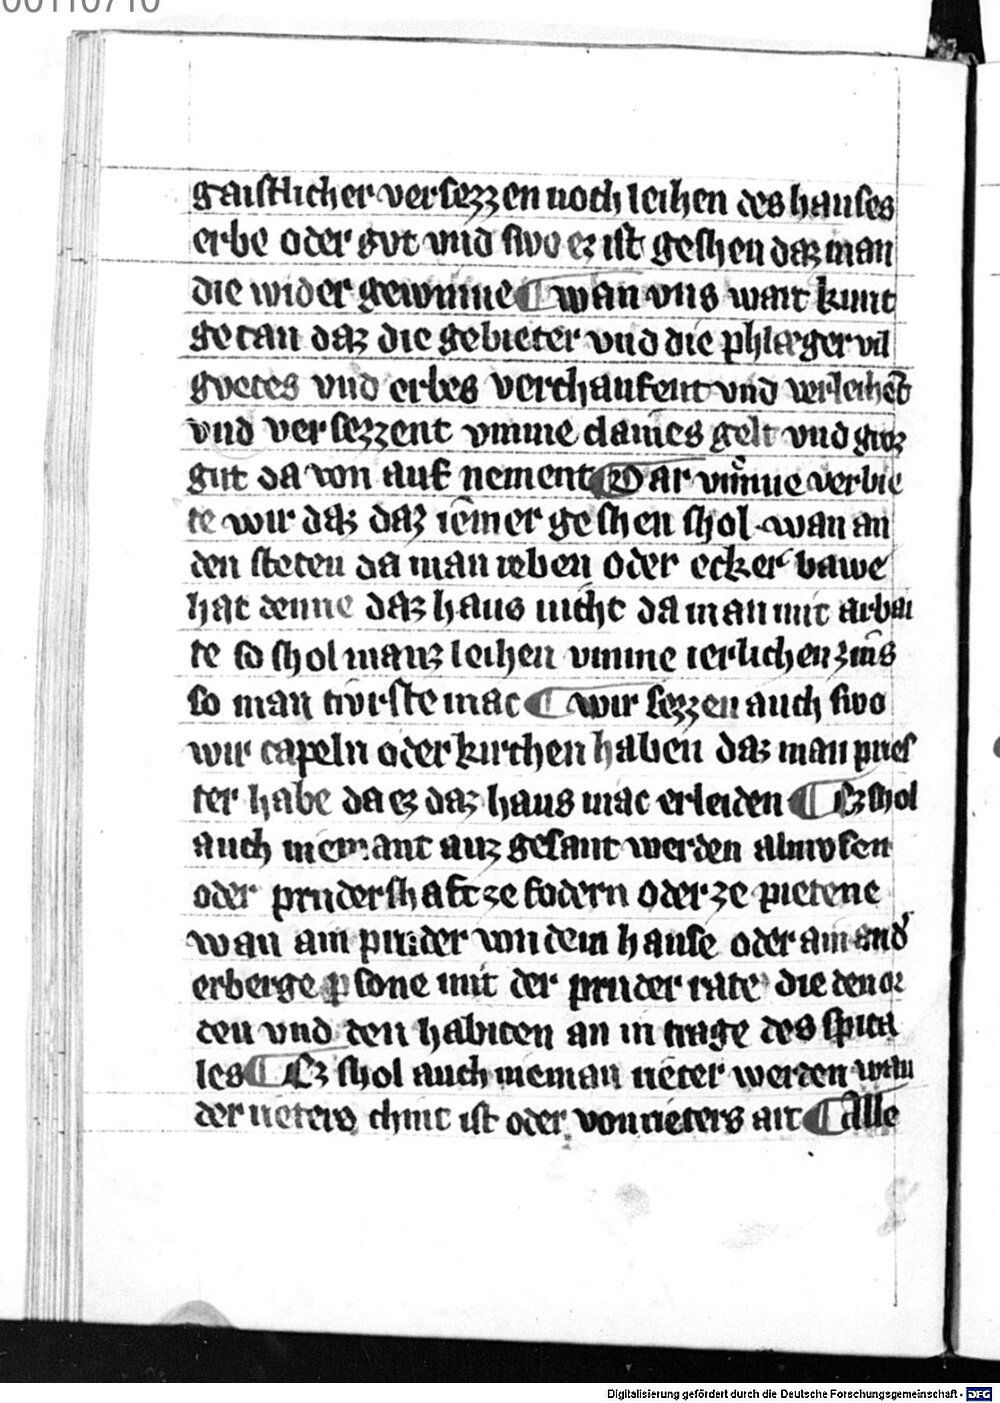 gaistlicher versezzen noch leihen des hauses
erbe oder gvt vnd swo ez ist geshen daz man
die wider gewinne ¶ wan vns wart kunt
getan daz die gebieter vnd die phlæger vil
gvetes vnd erbes verchaufent vnd verleihēt
vnd versezzent vmme claines gelt vnd groz
gut da von auf nement ¶ Dar vmme verbie
te wir daz daz iemer geshen shol · wan an
den steten da man reben oder ecker bawe
hat denne daz haus nicht da man mit arbai
te so shol manz leihen vmme ierlichen zins
so man tivrste mac ¶ wir sezzen auch swo
wir capeln oder kirchen haben daz man pries
ter habe da ez daz haus mac erleiden ¶ Ez shol
auch niemant auz gesant werden almosen
oder prudershaft ze fodern oder ze pietene
wan ain pruder von dem hause oder ain and
erberge p sone mit der pruder rate die den or
den vnd den habiten an in trage des spita
les ¶ Ez shol auch nieman rieter werden wan
der rieters chint ist oder von rieters art ¶ Alle
Digitalisierung gefördert durch die Deutsche Forschungsgemeinschaft - DFG